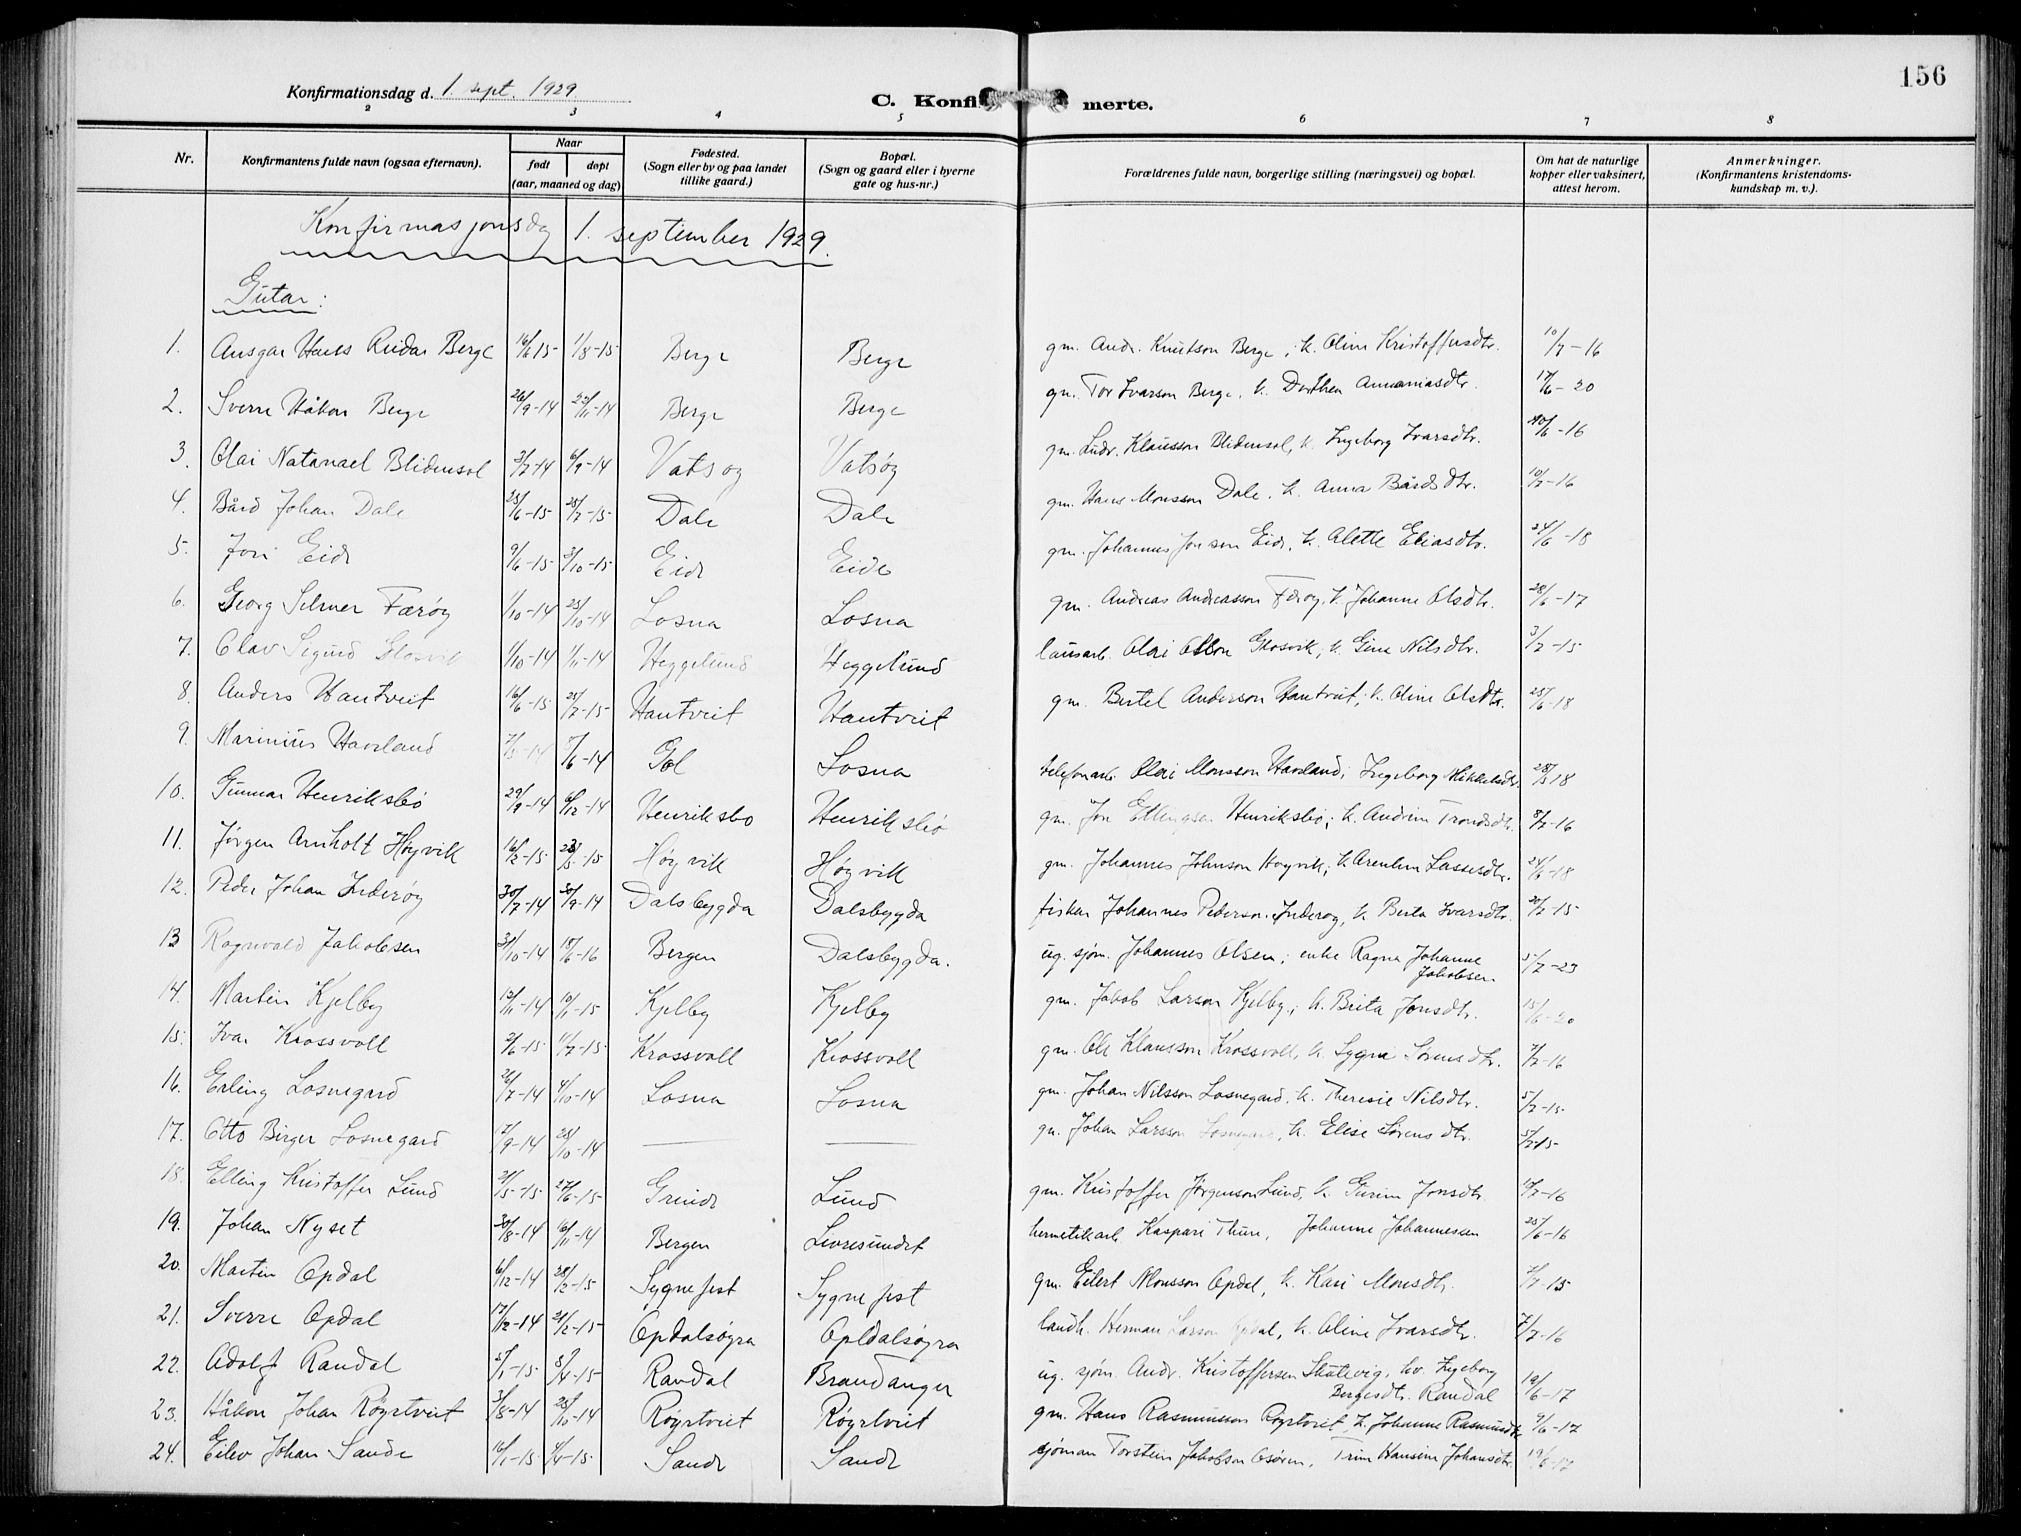 156
Konfirmationsdag d. 1. sept. 1929.
C. Konfi merte.
2 3 4 5 6 7 8
Nr. Konfirmantens fulde navn (ogsaa efternavn). Naar født døpt (aar, maaned og dag) Fødested. (Sogn eller by og paa landet tillike gaard.) Bopæl. (Sogn og gaard eller i byerne gate og hus-nr.) Forældrenes fulde navn, borgerlige stilling (næringsvei) og bopæl. Om hat de naturlige kopper eller vaksinert, attest herom. Anmerkninger. (Konfirmantens kristendoms-kundskap m. v.).
Konfirmasjonsdag 1. september 1929.
Gutar:
1. Ansgar Hans Reidar Berge 16/6 15 1/8-15 Berge Berge gm. Andr. Knutson Berge, k. Oline Kristoffersdtr. 10/7-16
2. Sverre Håkon Berge 26/9-14 22/11-14 Berge Berge gm. Tor Ivarson Berge, k. Dorthea Annaniasdtr. 17/6-20
3. Olai Natanael Blidensol 3/7-14 6/9-14 Vatsøg Vatsøg gm. Ludv. Klausson Blidensol, k. Ingeborg Ivarsdtr. /6-16
4. Bård Johan Dale 25/6-15 25/7-15 Dale Dale gm. Hans Monsson Dale, k. Anna Bårdsdtr. 10/7-16
5. Jon Eide 9/6-15 3/10-15 Eide Eide gm. Johannes Jonson Eide, k. Alette Eliasdtr. 24/6-18
6. Georg Selmer Færøy 1/10-14 25/10-14 Losna Losna gm. Andreas Andreasson Færøy, k. Johanne Olsdtr. 28/6-17
7. Olav Sigurd Glosvik 1/10-14 1/11-14 Heggelund Heggelund lausarb. Olai Olson Glosvik, k. Gine Nilsdtr. 3/7-15
8. Anders Hantveit 16/6-15 25/7-15 Hantveit Hantveit gm. Bertel Anderson Hantveit, k. Oline Olsdtr. 25/6-18
9. Marinius Havsland -14 7/6-14 Losna telefonarb. Olai Monsson Havsland, Ingeborg Mikkelsdtr. 18
10. Gunnar Henriksbø 29/9-14 6/12-14 Henriksbø Henriksbø gm. Jon Ellingsen Henriksbø; k. Andrine Trondsdtr. 8/7-16
11. Jørgen Arnholt Høyvik 16/2-15 /5-15 Høyvik Høyvik gm. Johannes Johnson Høyvik, k. Arentine Lassesdtr. 24/6-18
12. Peder Johan Inderøy 30/7-14 30/9-14 Dalsbygda Dalsbygda fiskar Johannes Pederson Inderøy, k. Berta Ivarsdtr. 20/7-15
13 Ragnvald Jakobsen 31/10-14 18/6-16 Bergen Dalsbygda. ug. sjøm. Johannes Olsen; enke Ragna Johanne Jakobsen 5/7-23
14. Martin Kjelby 15/11-14 10/1-15 Kjelby Kjelby gm. Jakob Larson Kjelby; k. Brita Jonsdtr. 15/6-20
15. Ivar Krossvoll 2/6-15 11/7-15 Krossvoll Krossvoll gm. Ole Klausson Krossvoll, k. Sygni Sørensdtr. 7/7-16
16. Erling Losnegard 26/7-14 4/10-14 Losna Losna gm. Johan Nilsson Losnegard, k. Theresie Nilsdtr. 5/7-15
17. Otto Birger Losnegard 17/9-14 25/10-14 — — gm. Johan Larsson Losnegard, k. Elise Sørensdtr. 5/7-15
18. Elling Kristoffer Lund 21/5-15 27/6-15 Grinde Lund gm. Kristoffer Jørgenson Lund, k. Gurine Jonsdtr. /7-16
19. Johan Nyset 30/8-14 16/11-14 Bergen Livresundet hermetikarb. Kaspar Thune, Johanne Johannessen 25/6-16
20. Martin Opdal 6/12-14 28/2-15 Sygnefest Sygnefest gm. Eilert Monsson Opdal, k. Kari Monsdtr. /7-15
21. Sverre Opdal 17/12-14 21/2-15 Opdalsøyra Opldalsøyra landh. Herman Larson Opdal, k. Oline Ivarsdtr. 7/7-16
22. Adolf Randal 5/1-15 5/4-15 Randal Brandanger ug. sjøm. Andr. Kristoffersen Skutevig, kv. Ingeborg Bergesdtr. Randal 19/6-17
23. Håkon Johan Røyrtveit 3/8-14 25/10-14 Røyrtveit Røyrtveit gm. Hans Rasmusson Røyrtveit, k. Johanne Rasmusdtr. 9/6-17
24. Eilev Johan Sande 16/1-15 4/4-15 Sande Sande sjøman Torstein Jakobson Osøren, Trine Hansine Johansdtr. 19/6-17